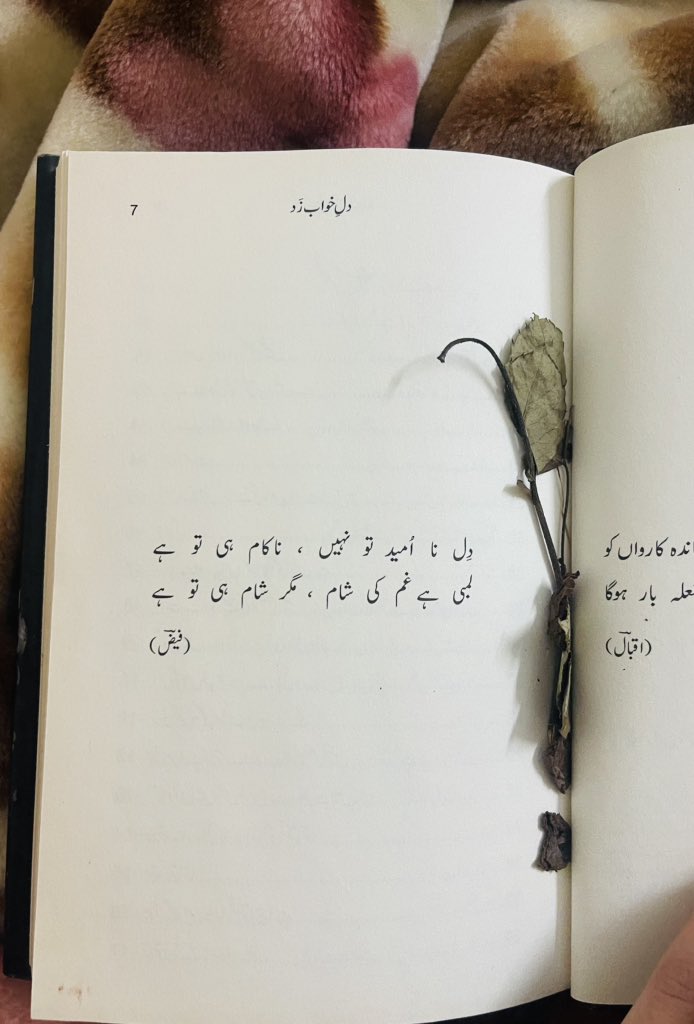 7
دلِ خواب زَد
دِل نا اُمید تو نہیں ، ناکام ہی تو ہے
لمبی ہے غم کی شام ، مگر شام ہی تو ہے
(فیضؔ)
کارواں کو
بار ہوگا
(اقبالؔ)